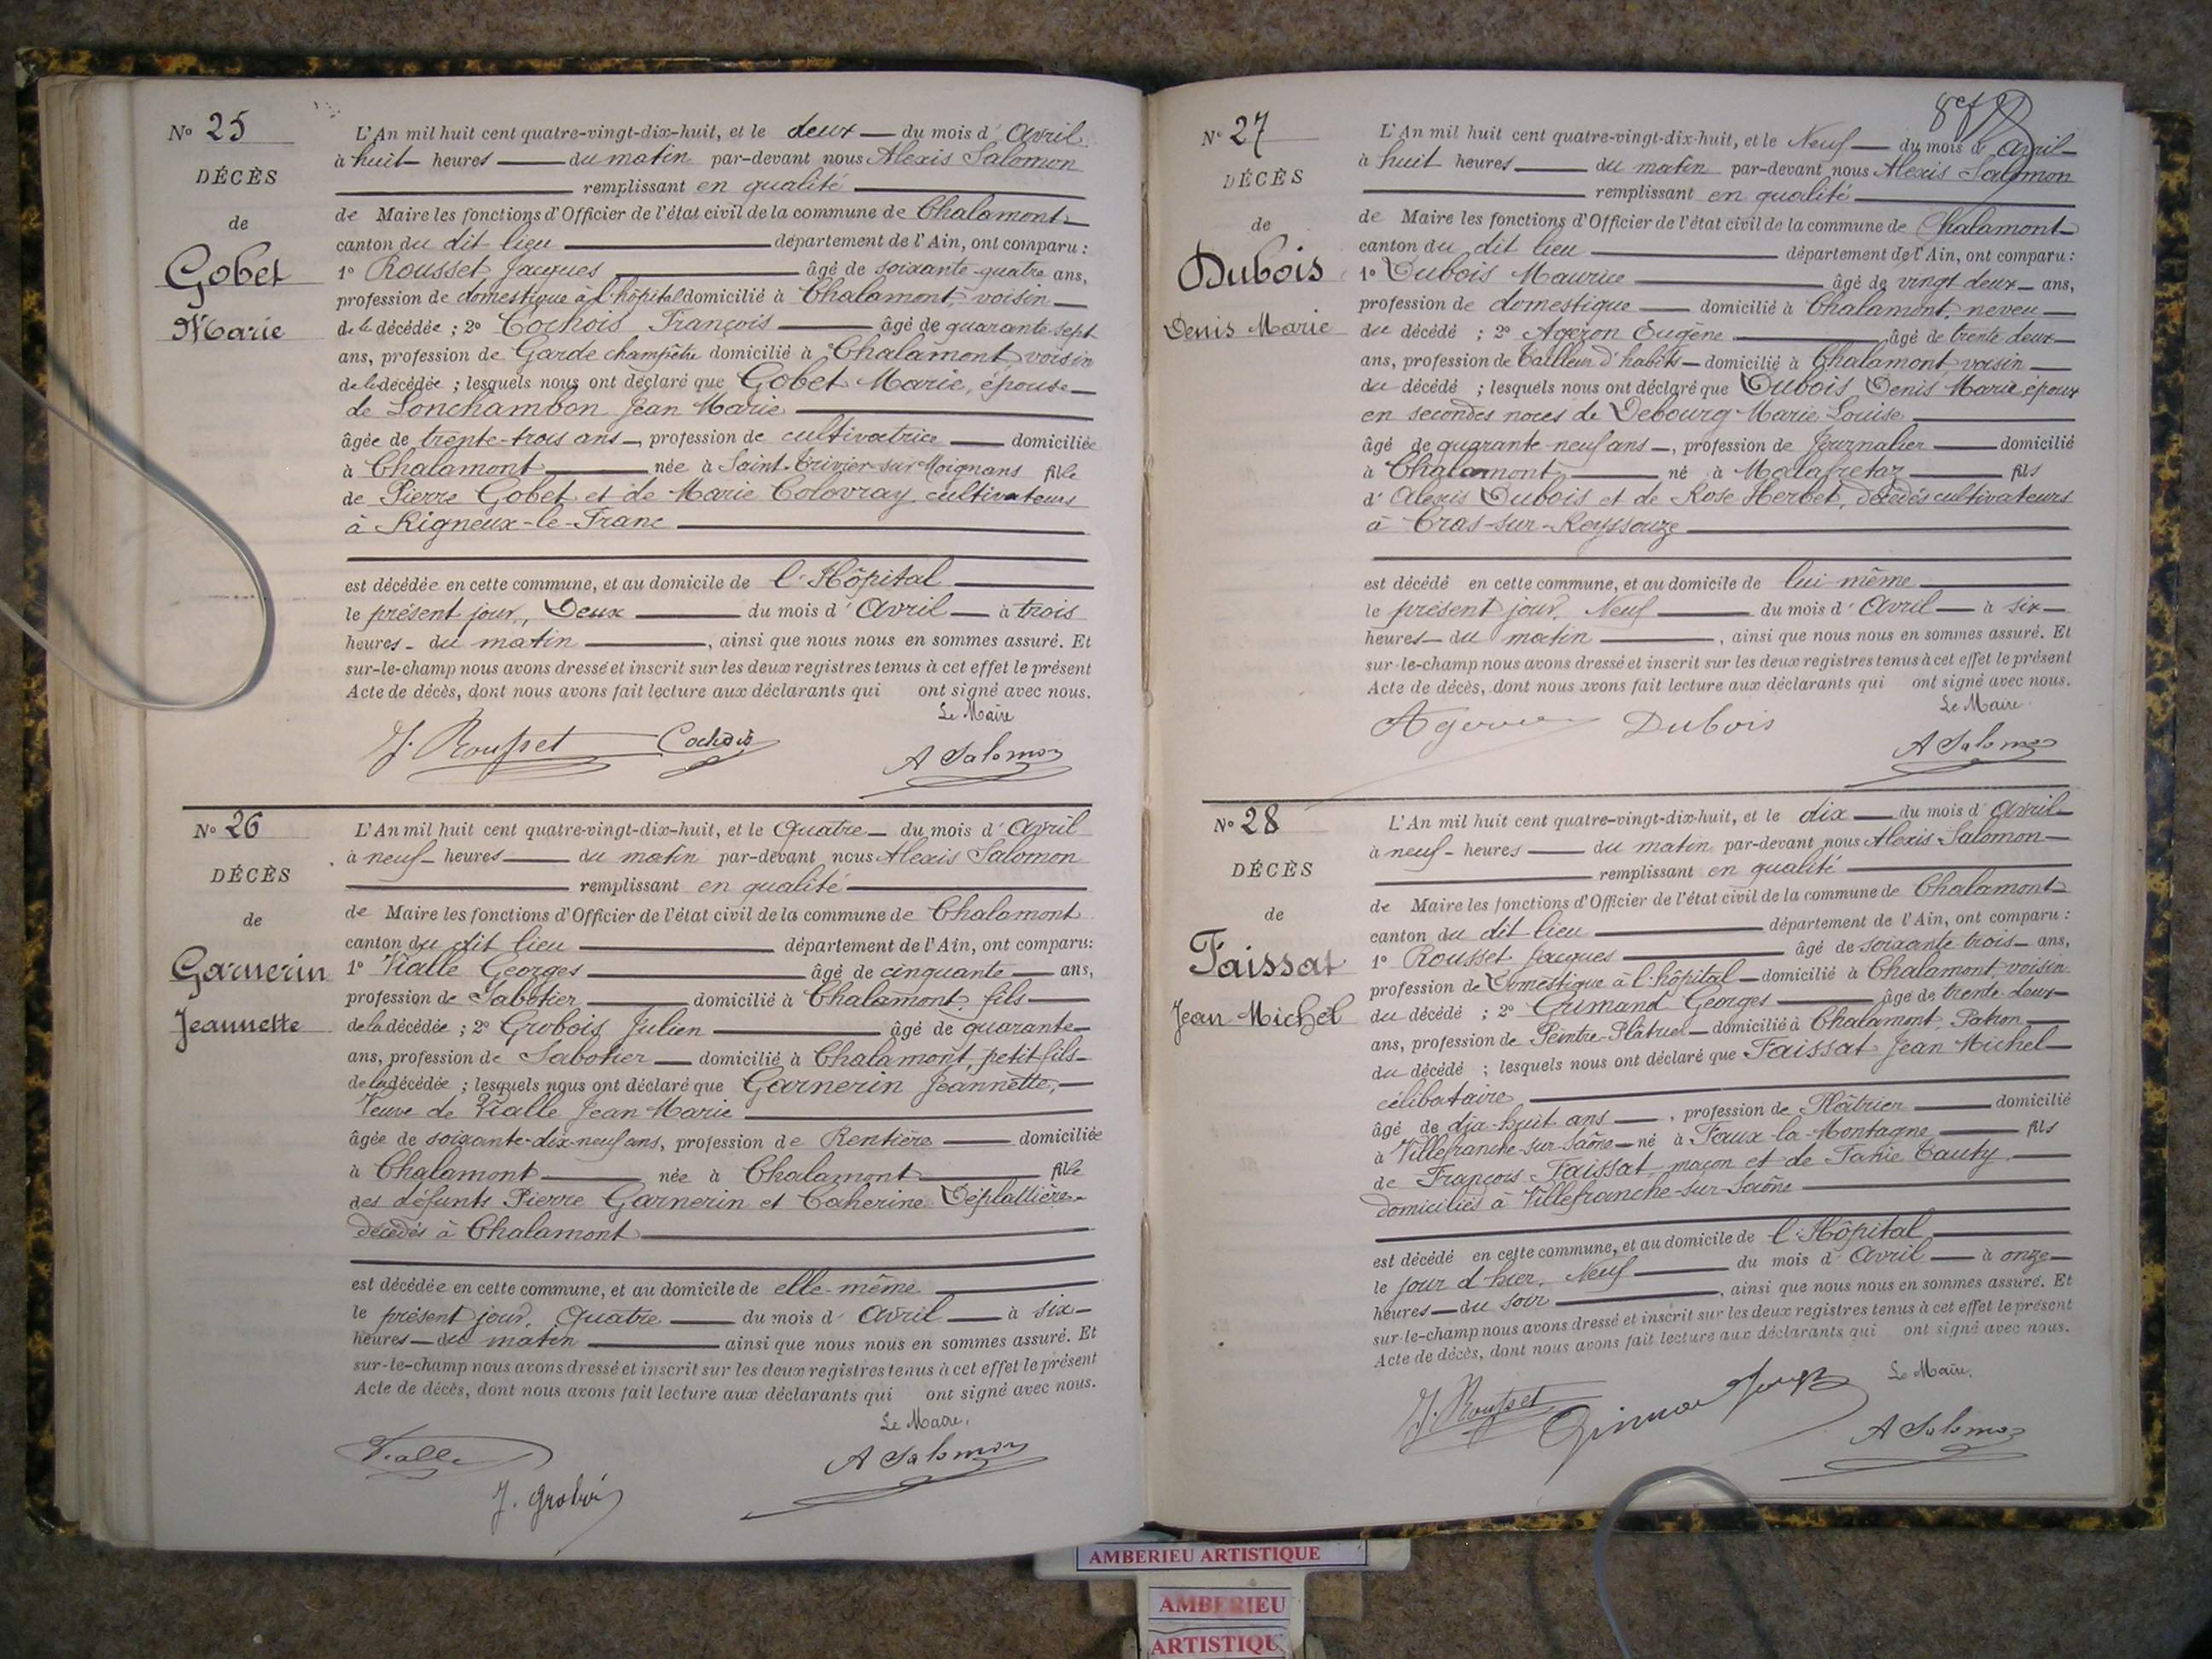 Nº 25
DÉCÈS
de
Gobet
Marie
L'An mil huit cent quatre-vingt-dix-huit, et le deux du mois d'Avril
à huit heures du matin par-devant nous Alexis Salomon
remplissant en qualité
de Maire les fonctions d'Officier de l'état civil de la commune de Chalamont
canton du dit lieu département de l'Ain, ont comparu :
1º Rousset Jacques âgé de soixante-quatre ans,
profession de domestique à l'hôpital domicilié à Chalamont, voisin
de la décédée ; 2º Cochois François âgé de quarante-sept
ans, profession de Garde champêtre domicilié à Chalamont, voisin
de la décédée ; lesquels nous ont déclaré que Gobet Marie, épouse
de Lonchambon Jean Marie
âgée de trente-trois ans, profession de cultivatrice domiciliée
à Chalamont née à Saint-Trivier-sur-Moignans fille
de Pierre Gobet et de Marie Colovray, cultivateurs
à Rigneux-le-Franc
est décédée en cette commune, et au domicile de l'Hôpital
le présent jour, Deux du mois d'Avril à trois
heures du matin, ainsi que nous nous en sommes assuré. Et
sur-le-champ nous avons dressé et inscrit sur les deux registres tenus à cet effet le présent
Acte de décès, dont nous avons fait lecture aux déclarants qui ont signé avec nous.
Le Maire
J. Rousset Cochois
A Salomon
Nº 26
DÉCÈS
de
Garnerin
Jeannette
L'An mil huit cent quatre-vingt-dix-huit, et le Quatre du mois d'Avril
à neuf heures du matin par-devant nous Alexis Salomon
remplissant en qualité
de Maire les fonctions d'Officier de l'état civil de la commune de Chalamont
canton du dit lieu département de l'Ain, ont comparu:
1º Vialle Georges âgé de cinquante ans,
profession de Sabotier domicilié à Chalamont, fils
de la décédée ; 2º Grobois Julien âgé de quarante
ans, profession de Sabotier domicilié à Chalamont, petit fils
de la décédée ; lesquels nous ont déclaré que Garnerin Jeannette,
Veuve de Vialle Jean Marie
âgée de soixante-dix-neuf ans, profession de Rentière domiciliée
à Chalamont née à Chalamont fille
des défunts Pierre Garnerin et Catherine Déplattière
décédés à Chalamont
est décédée en cette commune, et au domicile de elle-même
le présent jour, Quatre du mois d'Avril à six
heures du matin ainsi que nous nous en sommes assuré. Et
sur-le-champ nous avons dressé et inscrit sur les deux registres tenus à cet effet le présent
Acte de décès, dont nous avons fait lecture aux déclarants qui ont signé avec nous.
Le Maire,
Vialle
A Salomon
J. Grobois
87
Nº 27
DÉCÈS
de
Dubois
Denis Marie
L'An mil huit cent quatre-vingt-dix-huit, et le Neuf du mois d'Avril
à huit heures du matin par-devant nous Alexis Salomon
remplissant en qualité
de Maire les fonctions d'Officier de l'état civil de la commune de Chalamont
canton du dit lieu département de l'Ain, ont comparu :
1º Dubois Maurice âgé de vingt deux ans,
profession de domestique domicilié à Chalamont, neveu
du décédé ; 2º Ageron Eugène âgé de trente deux
ans, profession de tailleur d'habits domicilié à Chalamont voisin
du décédé ; lesquels nous ont déclaré que Dubois Denis Marie époux
en secondes noces de Debourg Marie Louise
âgé de quarante neuf ans, profession de Journalier domicilié
à Chalamont né à Malafretaz fils
d'Alexis Dubois et de Rose Herbet, décédés cultivateurs
à Cras-sur-Reyssouze
est décédé en cette commune, et au domicile de lui même
le présent jour, Neuf du mois d'Avril à six
heures du matin, ainsi que nous nous en sommes assuré. Et
sur-le-champ nous avons dressé et inscrit sur les deux registres tenus à cet effet le présent
Acte de décès, dont nous avons fait lecture aux déclarants qui ont signé avec nous.
Le Maire
Ageron Dubois
A Salomon
Nº 28
DÉCÈS
de
Faissat
Jean Michel
L'An mil huit cent quatre-vingt-dix-huit, et le dix du mois d'Avril
à neuf heures du matin par-devant nous Alexis Salomon
remplissant en qualité
de Maire les fonctions d'Officier de l'état civil de la commune de Chalamont
canton du dit lieu département de l'Ain, ont comparu :
1º Rousset Jacques âgé de soixante trois ans,
profession de Domestique à l'hôpital domicilié à Chalamont, voisin
du décédé ; 2º Grimand Georges âgé de trente-deux
ans, profession de Peintre-Plâtrier domicilié à Chalamont, Patron
du décédé ; lesquels nous ont déclaré que Faissat Jean Michel
célibataire
âgé de dix-huit ans, profession de Plâtrier domicilié
à Villefranche-sur-Saône né à Faux-la-Montagne fils
de François Faissat, maçon et de Tauty
domiciliés à Villefranche-sur-Saône
est décédé en cette commune, et au domicile de l'Hôpital
le jour d'hier, Neuf du mois d'Avril à onze
heures du soir, ainsi que nous nous en sommes assuré. Et
sur-le-champ nous avons dressé et inscrit sur les deux registres tenus à cet effet le présent
Acte de décès, dont nous avons fait lecture aux déclarants qui ont signé avec nous.
Le Maire,
J. Rousset
A Salomon
AMBERIEU ARTISTIQUE
AMBERIEU
ARTISTIQU